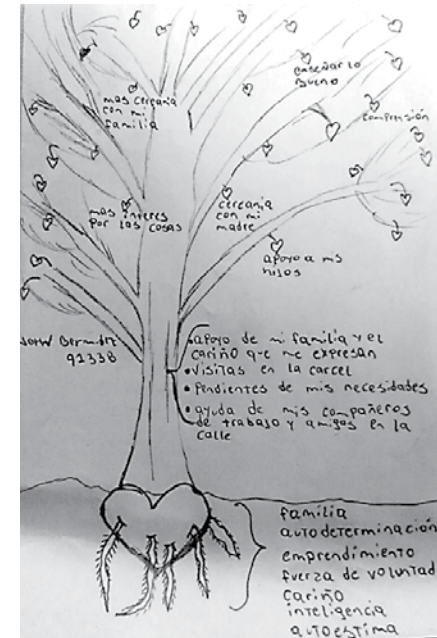 enseñar lo
bueno
mas cercania
con mi
familia
comprensión
mas interes
por las cosas
cercania
con mi
madre
apoyo a mis
hijos
92338
• apoyo de mi familia y el
cariño que me expresan
• visitas en la carcel
• Pendientes de mis necesidades
• ayuda de mis compañeros
de trabajo y amigos en la
calle
familia
autodeterminación
emprendimiento
fuerza de voluntad
cariño
inteligencia
autoestima